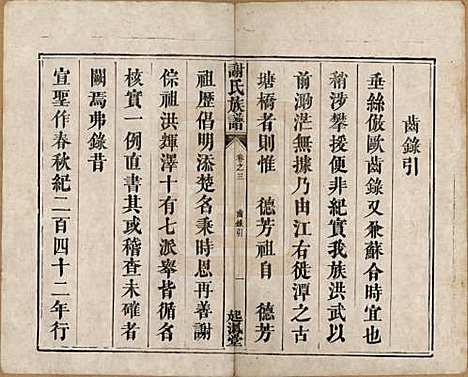 齒錄引
垂絲倣歐齒錄又兼蘇合時宜也
稍涉攀援便非紀實我族洪武以
前溯茫無據乃由江右徙潭之古
塘橋者則惟 德芳祖自 德芳
謝氏族譜
卷之三
齒錄引
一
起鳳堂
祖歷倡明添楚名秉時恩再善謝
倧祖洪輝澤十有七派舉皆循名
核實一例直書其或稽查未確者
闕焉弗錄昔
宣聖作春秋紀二百四十二年行